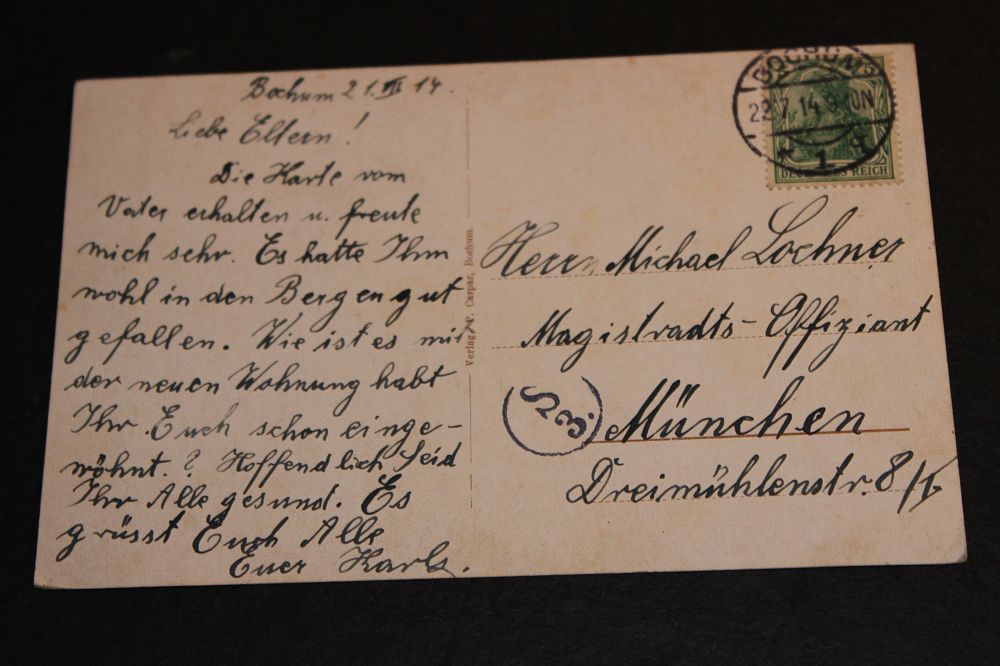 Bochum 21.VII 14.
Liebe Eltern!
Die Karte vom
Vater erhalten u. freute
mich sehr. Es hatte Ihm
wohl in den Bergen gut
gefallen. Wie ist es mit
der neuen Wohnung habt
Ihr Euch schon einge-
wöhnt.? Hoffendlich Seid
Ihr Alle gesund. Es
grüsst Euch Alle
Euer Karl.
Verlag P. Caspar, Bochum.
BOCHUM
22.7.14.9-10N
1
DEUTSCHES REICH
Herrn Michael Lochner
Magistradts-Offiziant
München
Dreimühlenstr. 8/I